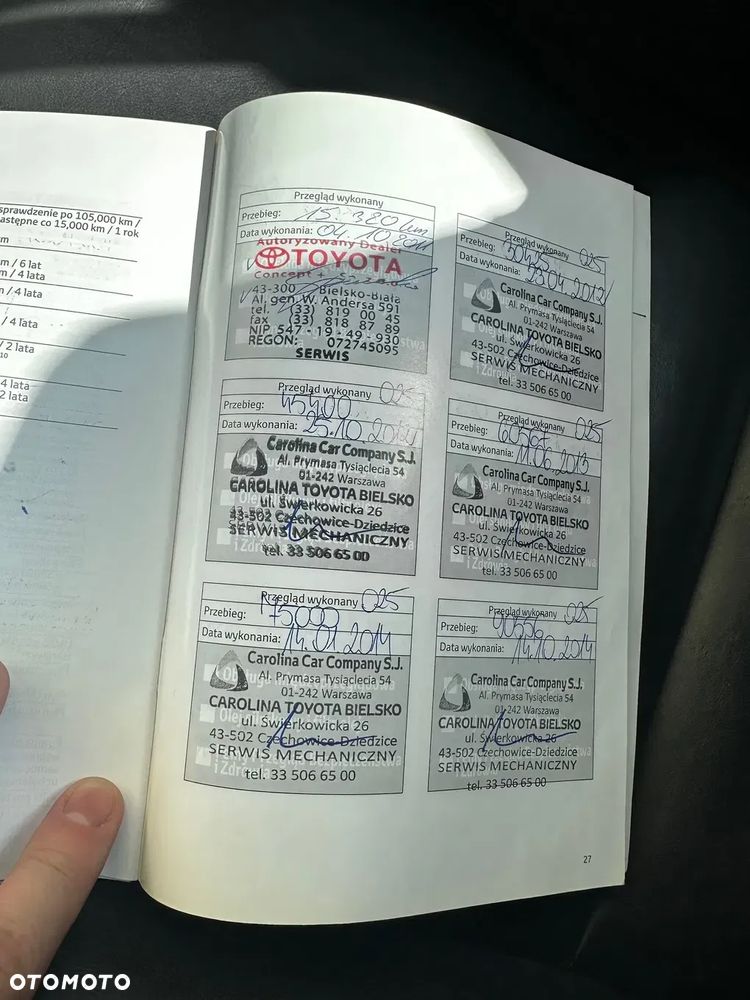 sprawdzenie po 105,000 km /
astępne co 15,000 km / 1 rok
m / 6 lat
m / 4 lata
/ 4 lata
/ 4 lata
/ 2 lata
4 lata
2 lata
Przegląd wykonany
Przebieg: 15.380 km
Data wykonania: 04.10.2011
Autoryzowany Dealer
TOYOTA
43-300 Bielsko-Biała
Al. gen. W. Andersa 591
tel. (33) 819 00 45
fax (33) 818 87 89
NIP 547-19-49-930
REGON: 072745095
SERWIS
Przegląd wykonany 025
Przebieg:
Data wykonania: 23.04.2012
Carolina Car Company S.J.
Al. Prymasa Tysiąclecia 54
01-242 Warszawa
CAROLINA TOYOTA BIELSKO
ul. Świerkowicka 26
43-502 Czechowice-Dziedzice
SERWIS MECHANICZNY
tel. 33 506 65 00
Przegląd wykonany 025
Przebieg: 45400
Data wykonania: 25.10.2012
Carolina Car Company S.J.
Al. Prymasa Tysiąclecia 54
01-242 Warszawa
CAROLINA TOYOTA BIELSKO
ul. Świerkowicka 26
43-502 Czechowice-Dziedzice
SERWIS MECHANICZNY
tel. 33 506 65 00
Przegląd wykonany 025
Przebieg: 60567
Data wykonania: 11.06.2013
Carolina Car Company S.J.
Al. Prymasa Tysiąclecia 54
01-242 Warszawa
CAROLINA TOYOTA BIELSKO
ul. Świerkowicka 26
43-502 Czechowice-Dziedzice
SERWIS MECHANICZNY
tel. 33 506 65 00
Przegląd wykonany 025
Przebieg: 75000
Data wykonania: 14.01.2014
Carolina Car Company S.J.
Al. Prymasa Tysiąclecia 54
01-242 Warszawa
CAROLINA TOYOTA BIELSKO
ul. Świerkowicka 26
43-502 Czechowice-Dziedzice
SERWIS MECHANICZNY
tel. 33 506 65 00
Przegląd wykonany 025
Przebieg: 90556
Data wykonania: 14.10.2014
Carolina Car Company S.J.
Al. Prymasa Tysiąclecia 54
01-242 Warszawa
CAROLINA TOYOTA BIELSKO
ul. Świerkowicka 26
43-502 Czechowice-Dziedzice
SERWIS MECHANICZNY
tel. 33 506 65 00
27
OTOMOTO